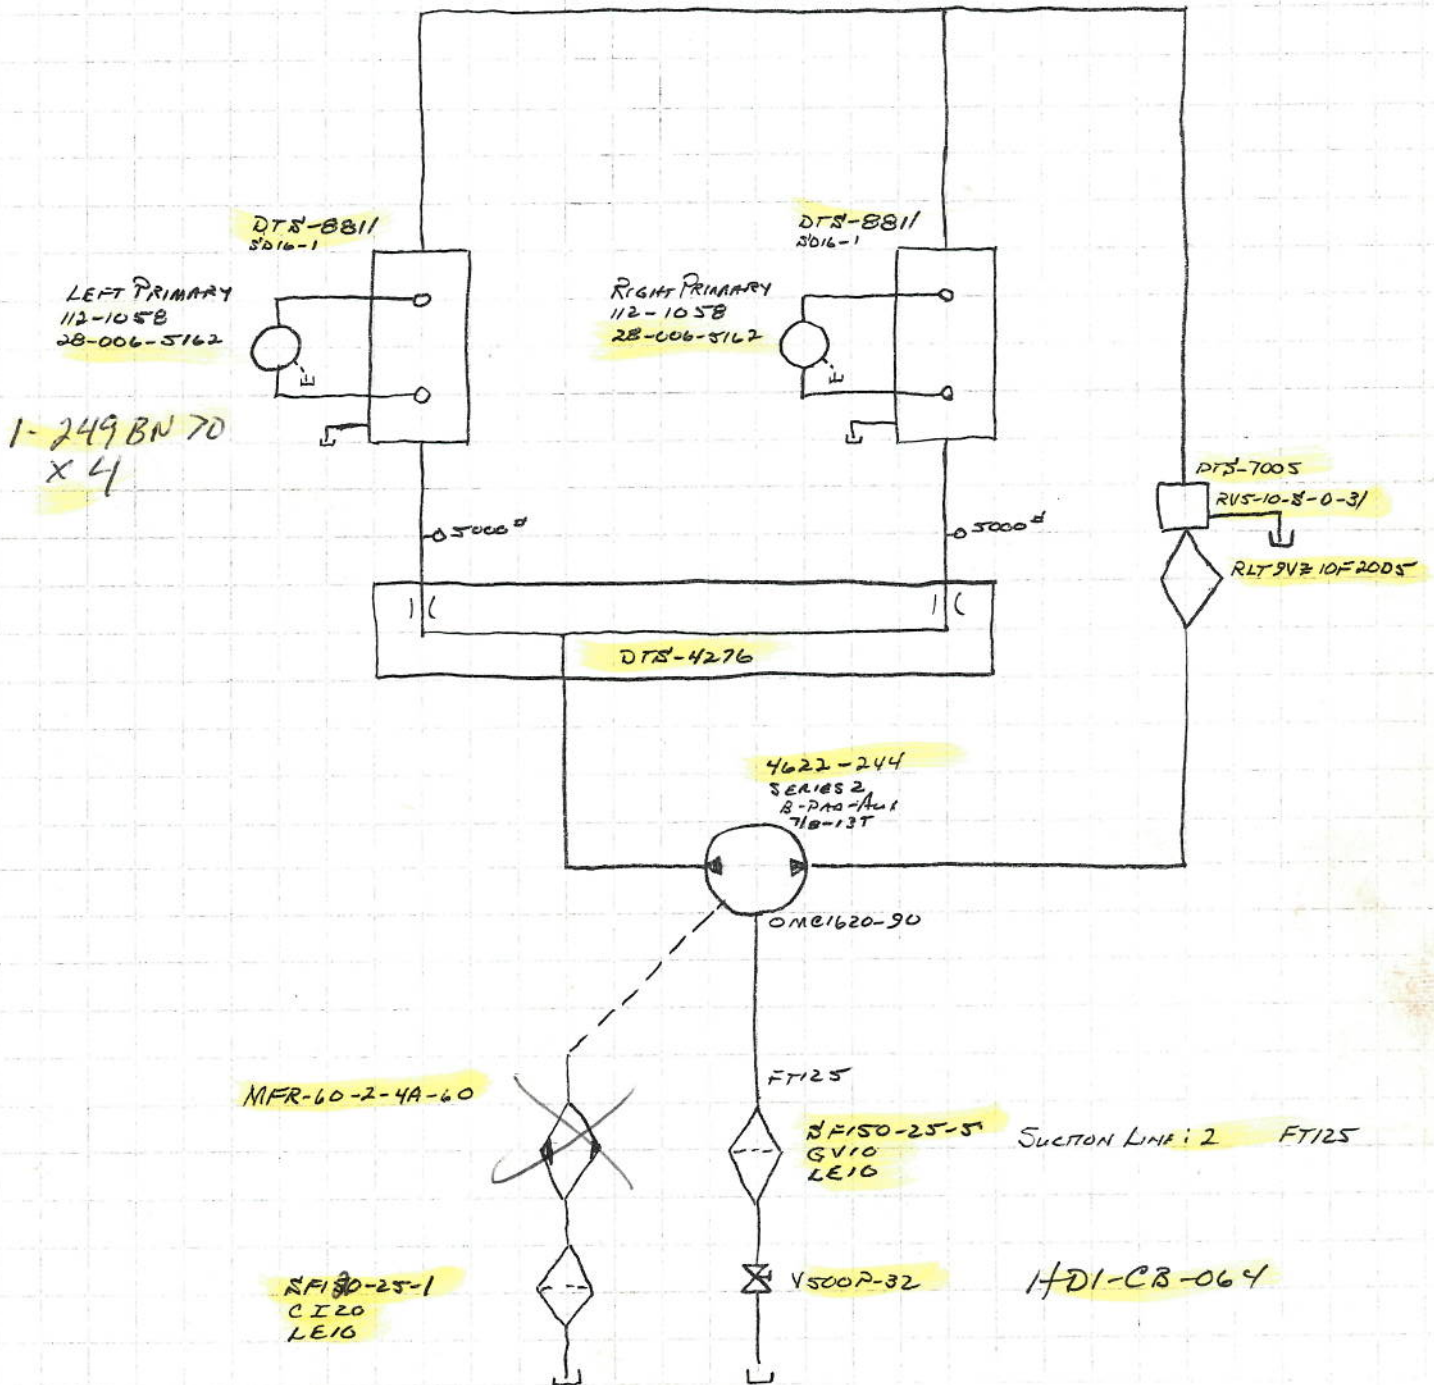 DTS-8811
SD16-1
LEFT PRIMARY
112-1058
28-006-5162
DTS-8811
SD16-1
RIGHT PRIMARY
112-1058
28-006-5162
1-249 BN 70
X 4
5000#
5000#
DTS-7005
RV5-10-S-0-31
RLT9VZ10F20D5
DTS-4276
4622-244
SERIES 2
B-PAD-AUX
7/8-13T
OMC1620-90
MFR-60-2-4A-60
FT125
SF150-25-5
GV10
LE10
SUCTION LINE: 2 FT125
25-1
CI20
LE10
V500P-32
HDI-CB-064